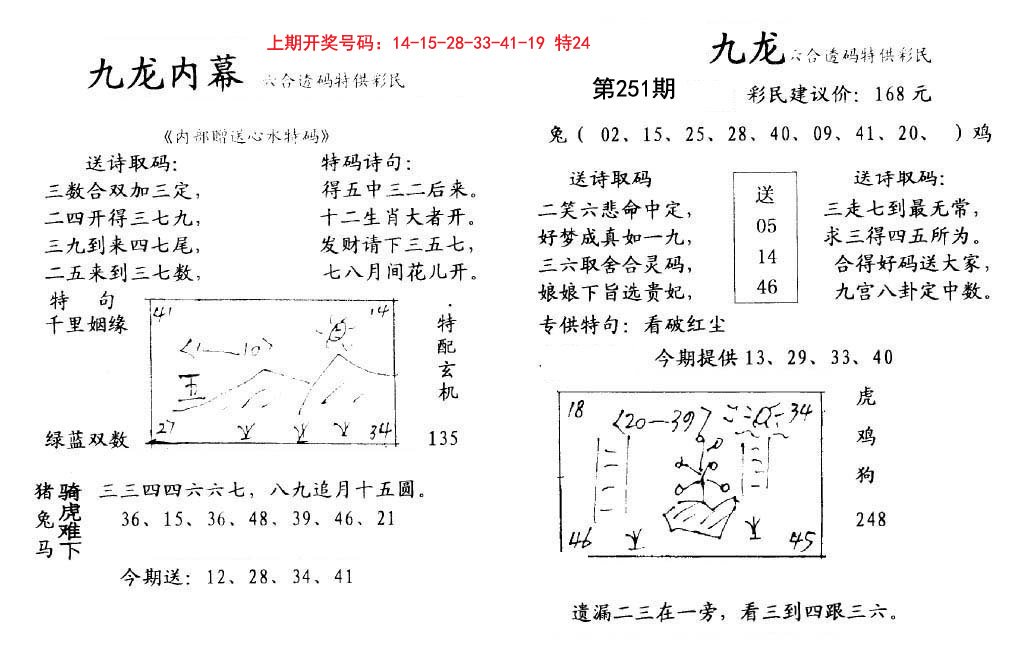 上期开奖号码：14-15-28-33-41-19 特24
九龙内幕 六合透码特供彩民
《内部赠送心水特码》
送诗取码：
三数合双加三定，
二四开得三七九，
三九到来四七尾，
二五来到三七数，
特码诗句：
得五中三二后来。
十二生肖大者开。
发财请下三五七，
七八月间花儿开。
特 句
千里姻缘
绿蓝双数
41
14
1—10
27
34
·特配玄机
135
猪兔马
骑虎难下
三三四四六六七，八九追月十五圆。
36、15、36、48、39、46、21
今期送：12、28、34、41
九龙 六合透码特供彩民
第251期
彩民建议价：168元
兔（ 02、15、25、28、40、09、41、20、 ）鸡
送诗取码
二笑六悲命中定，
好梦成真如一九，
三六取舍合灵码，
娘娘下旨选贵妃，
送
05
14
46
送诗取码：
三走七到最无常，
求三得四五所为。
合得好码送大家，
九宫八卦定中数。
专供特句：看破红尘
今期提供13、29、33、40
18
20—39
34
46
45
虎
鸡
狗
248
遗漏二三在一旁，看三到四跟三六。